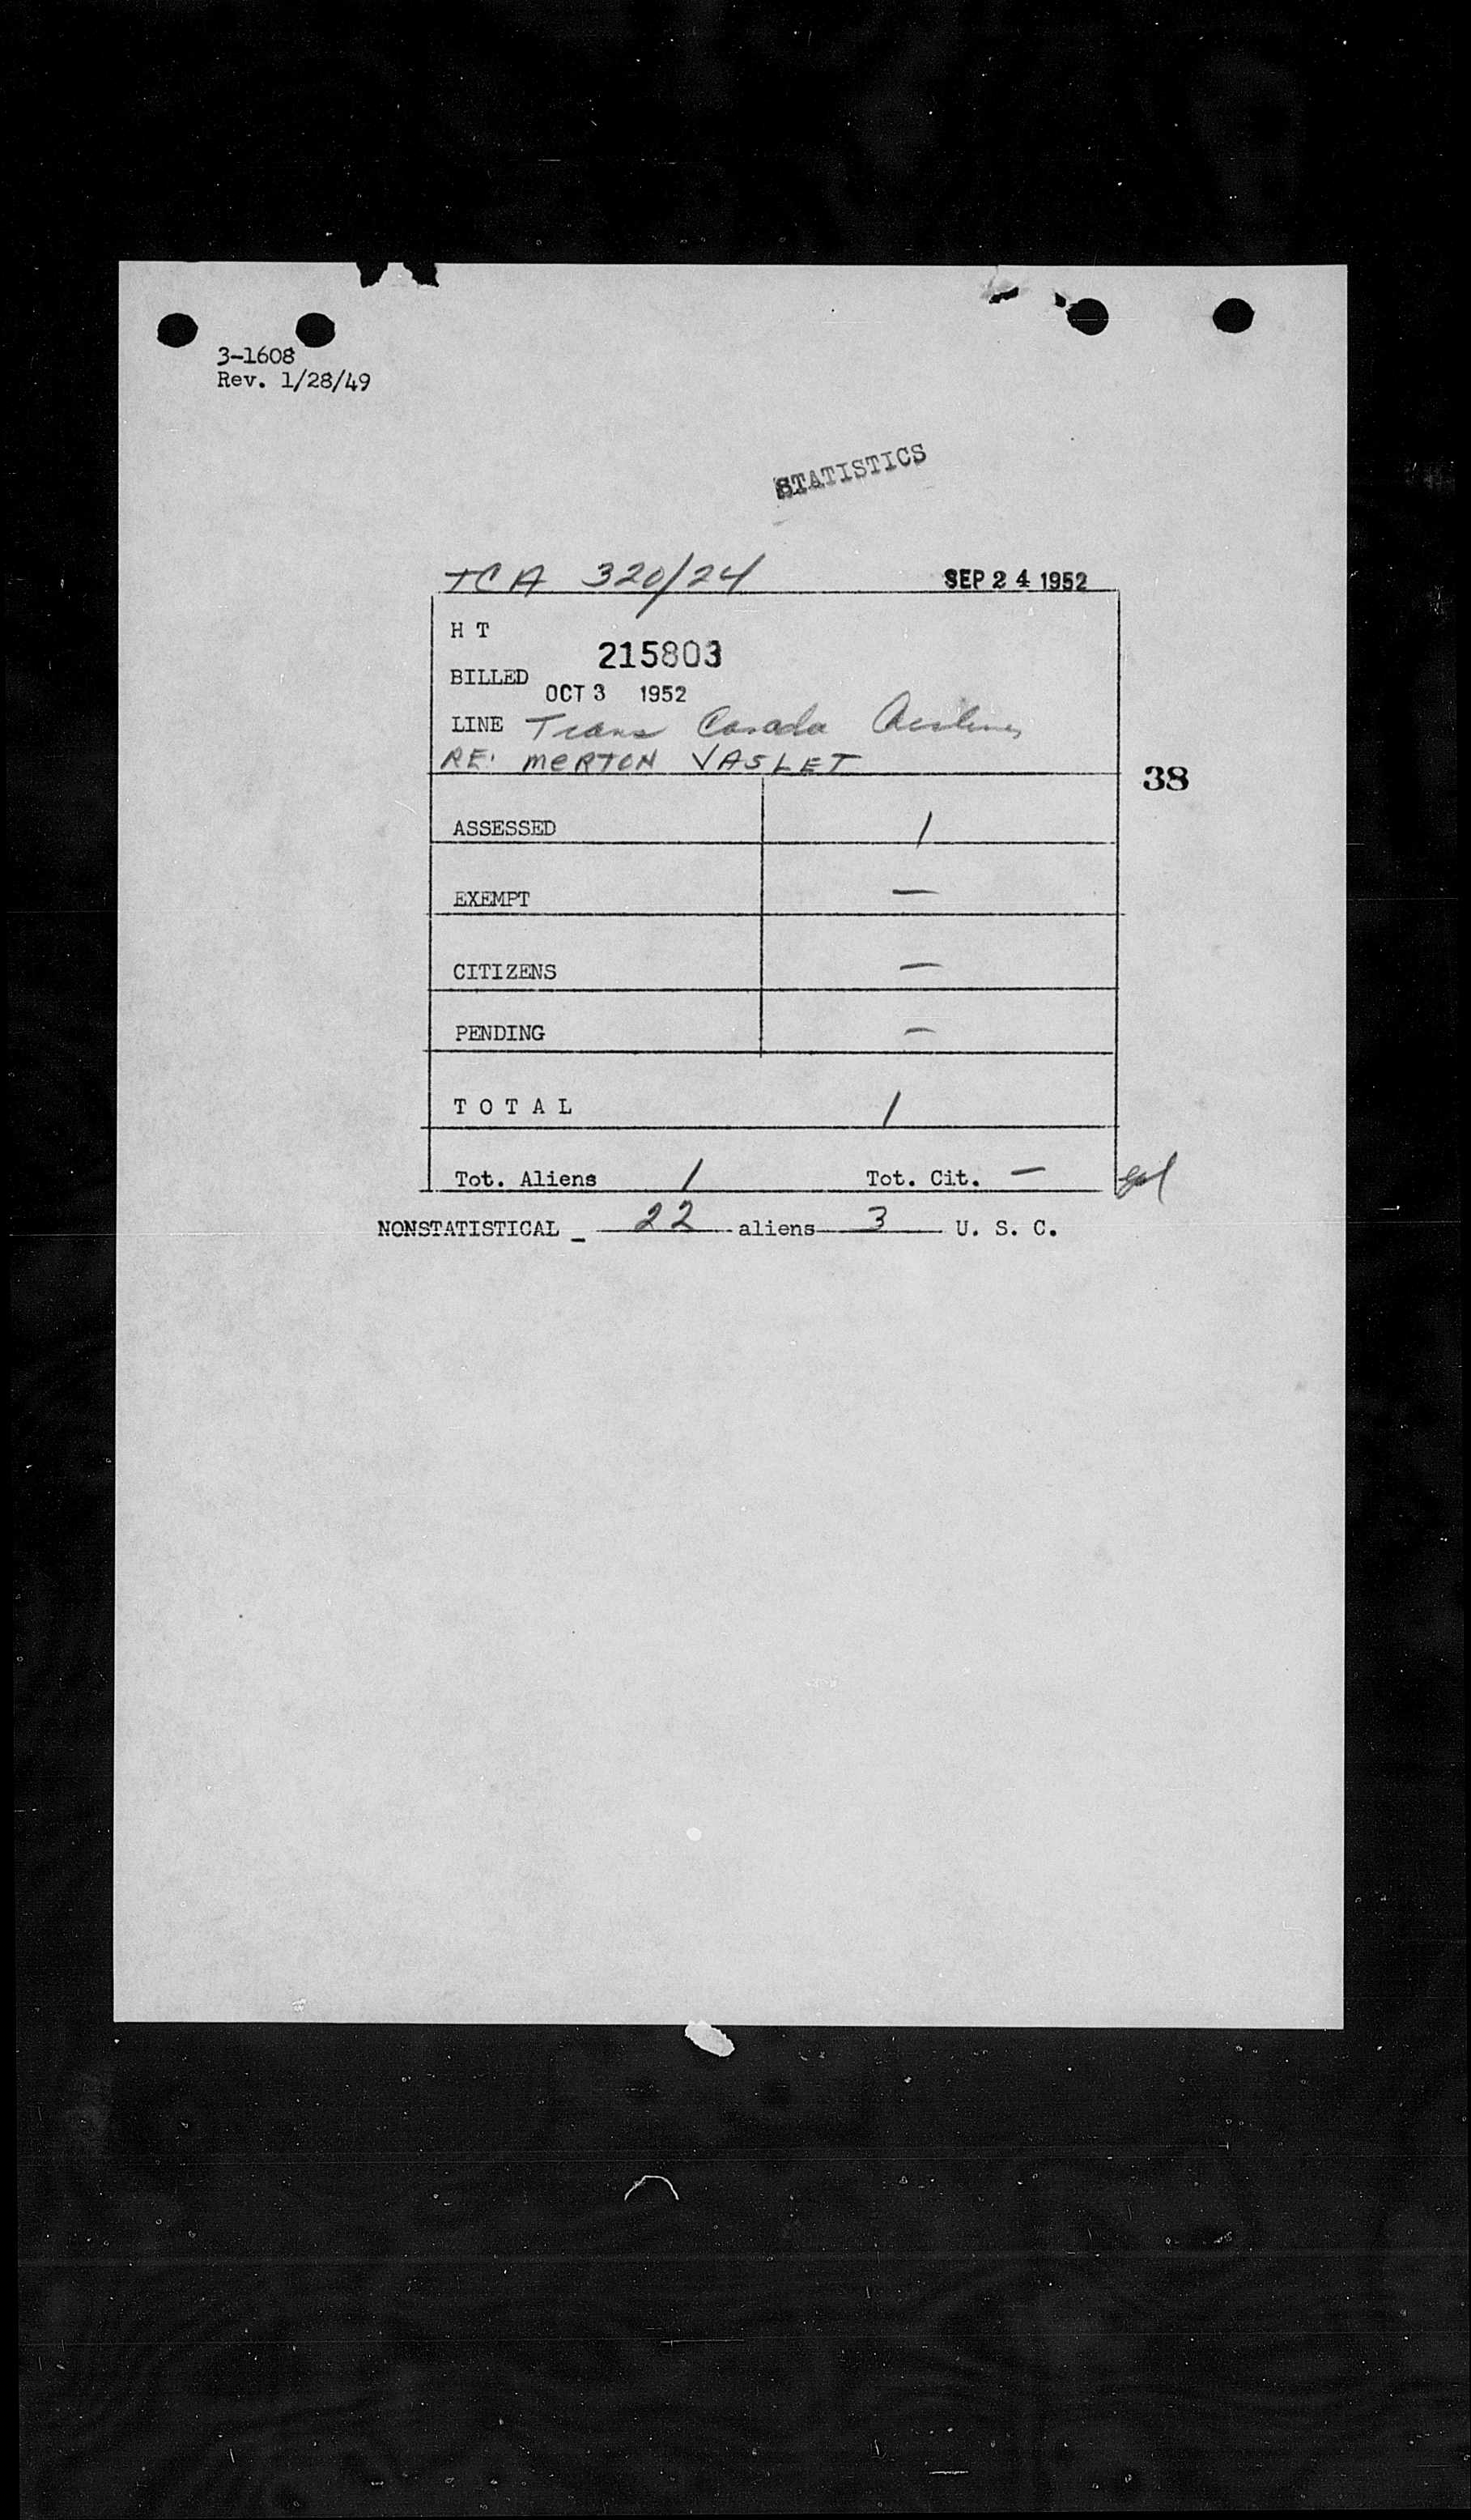 3-1608
Rev. 1/28/49
STATISTICS
TCA 320/24 SEP 24 1952
H T
215803
BILLED
OCT 3 1952
LINE Trans Canada Airlines
RE: MERTON VASLET
38
ASSESSED 1
EXEMPT —
CITIZENS —
PENDING —
T O T A L 1
Tot. Aliens 1 Tot. Cit. —
NONSTATISTICAL _ 22 aliens 3 U. S. C.